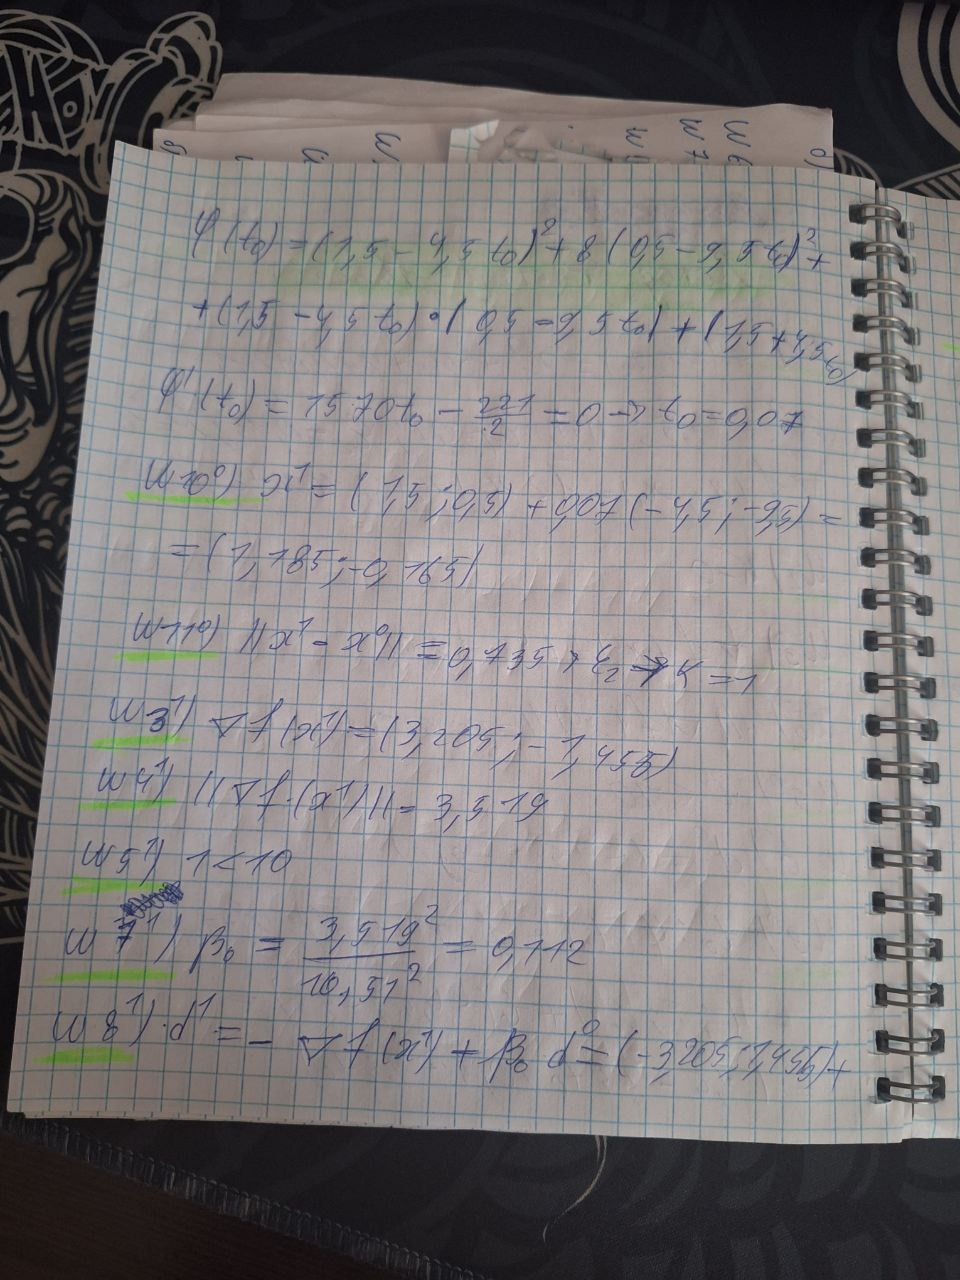 φ(t₀) = (1,5 – 4,5 t₀)² + 8 (0,5 – 9,5 t₀)² +
+ (1,5 – 4,5 t₀) · (0,5 – 9,5 t₀) + (1,5 + 4,5 t₀)
φ'(t₀) = 1570 t₀ – 221/2 = 0 → t₀ = 0,07
ш10⁰) x¹ = (1,5; 0,5) + 0,07 (–4,5; –9,5) =
= (1,185; –0,165)
ш11⁰) ||x¹ – x⁰|| = 0,735 > ε₂ → k = 1
ш3¹) ∇f(x¹) = (3,205; –1,455)
ш4¹) ||∇f·(x¹)|| = 3,519
ш5¹) 1 < 10
ш7¹) β₀ = 3,519²/10,51² = 0,112
ш8¹) · d¹ = – ∇f(x¹) + β₀ d⁰ = (–3,205; 1,455) +